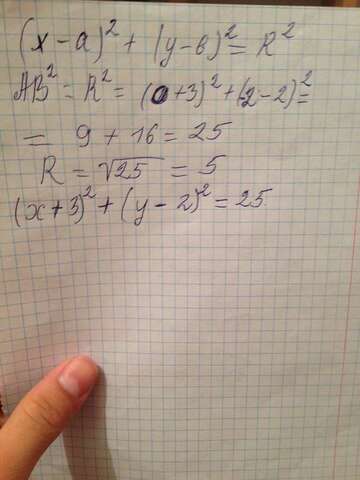 (x - a)² + (y - в)² = R²
AB² = R² = (0 + 3)² + (-2 - 2)² =
= 9 + 16 = 25
R = √25 = 5
(x + 3)² + (y - 2)² = 25